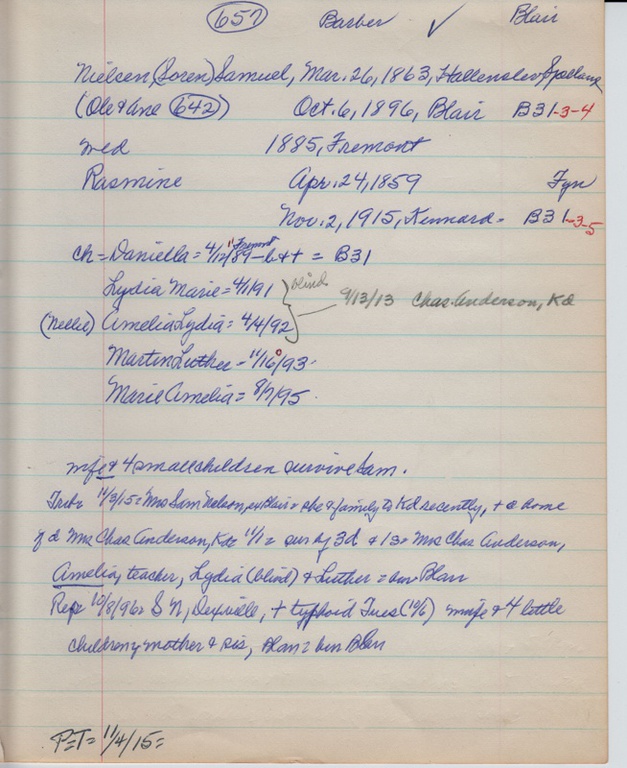 657 Barber ✓ Blair
Nielsen (Soren) Samuel, Mar. 26, 1863, Hallenslev
(Ole & Ane 642) Oct. 6, 1896, Blair B31-3-4
med 1885, Fremont
Rasmine Apr. 24, 1859 Fyn
Nov. 2, 1915, Kennard = B31-3-5
ch = Daniella = 4/12/89 - b & t = B31
Lydia Marie = 4/1/91 blind
9/13/13 Chas. Anderson, Kd
(Nellie) Amelia Lydia = 4/4/92
Martin Luther = 11/16/93
Marie Amelia = 8/7/95
wife & 4 small children survive Sam.
Trib = 11/3/15 = Mrs Sam Nelson, Blair = she & family to Kd recently, + @ home
of d Mrs Chas Anderson, Kd 11/1 = sur by 3d & 1s = Mrs Chas Anderson,
Amelia, teacher, Lydia (blind) & Luther = bur Blair
Rep 10/8/96 = S N, + typhoid Tues (10/6) wife & 4 little
children, mother & sis, Blair = bur Blair
P=T= 11/4/15=